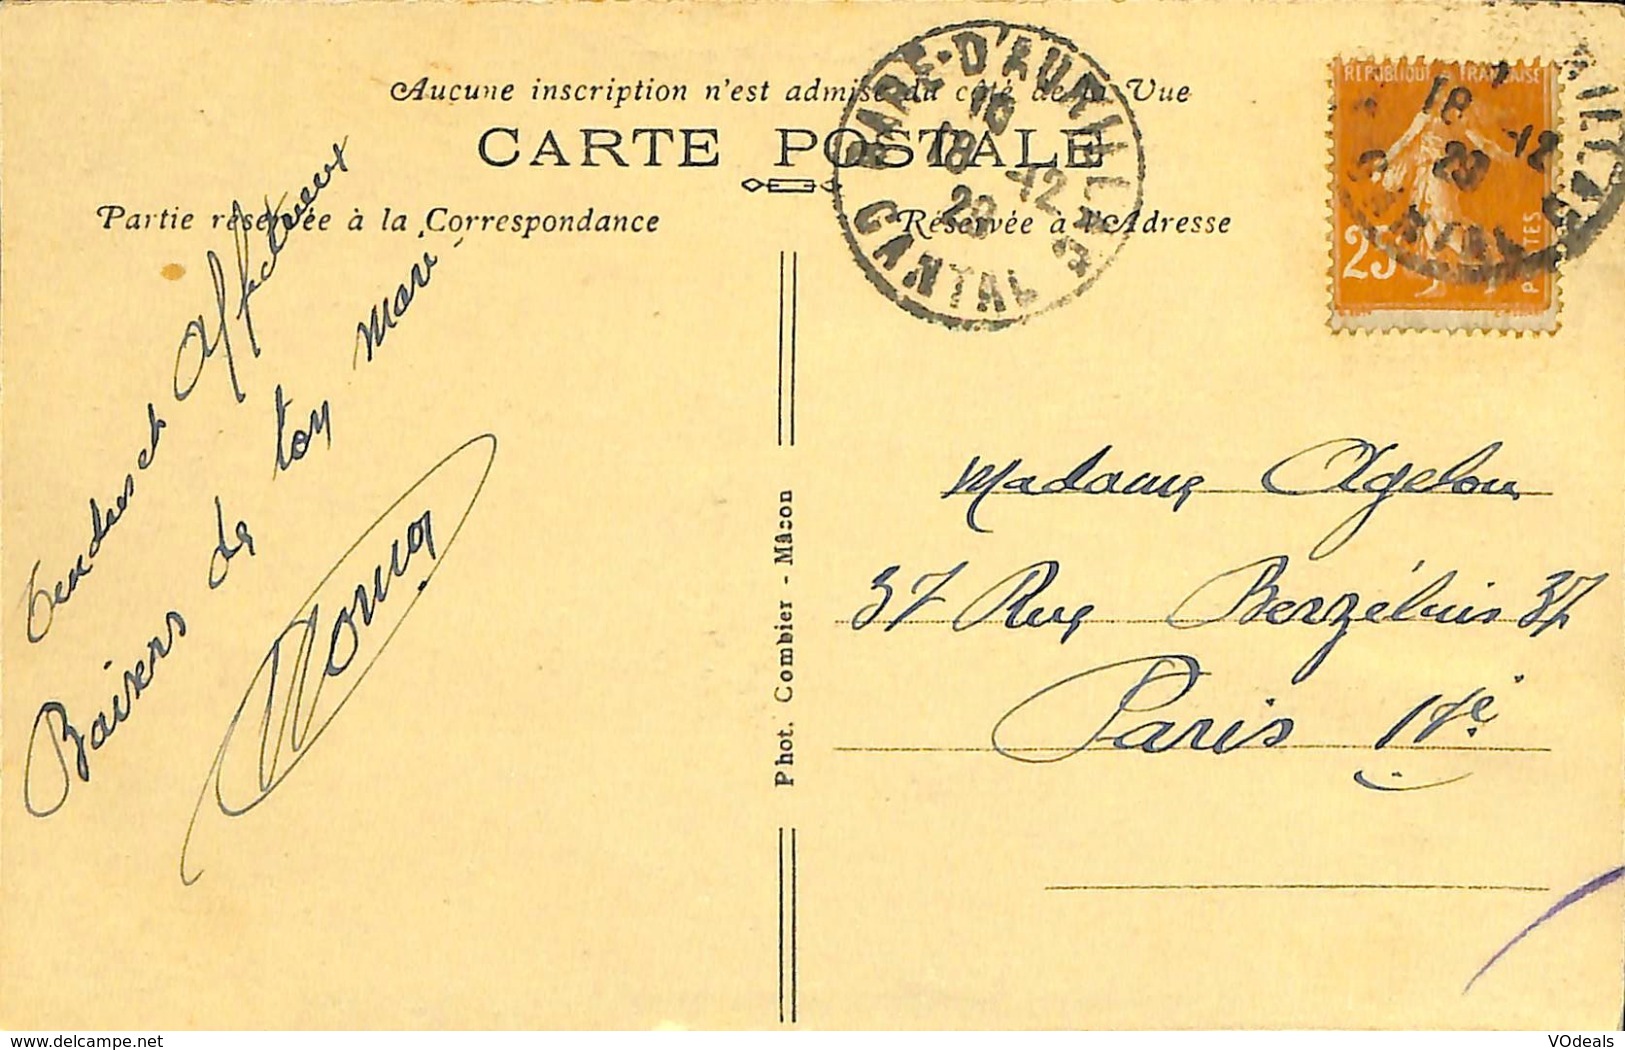 Aucune inscription n'est admise du côté de la Vue
CARTE POSTALE
Partie réservée à la Correspondance
Réservée à l'Adresse
GARE-D'AURILLAC
16
18 -12
29
CANTAL
REPUBLIQUE FRANÇAISE
25c
POSTES
18 -12
29
Tendres et Affectueux
Baisers de ton mari
Phot. Combier - Mâcon
Madame Agelou
37 Rue Berzélius 37
Paris 17e
delcampe.net
VOdeals